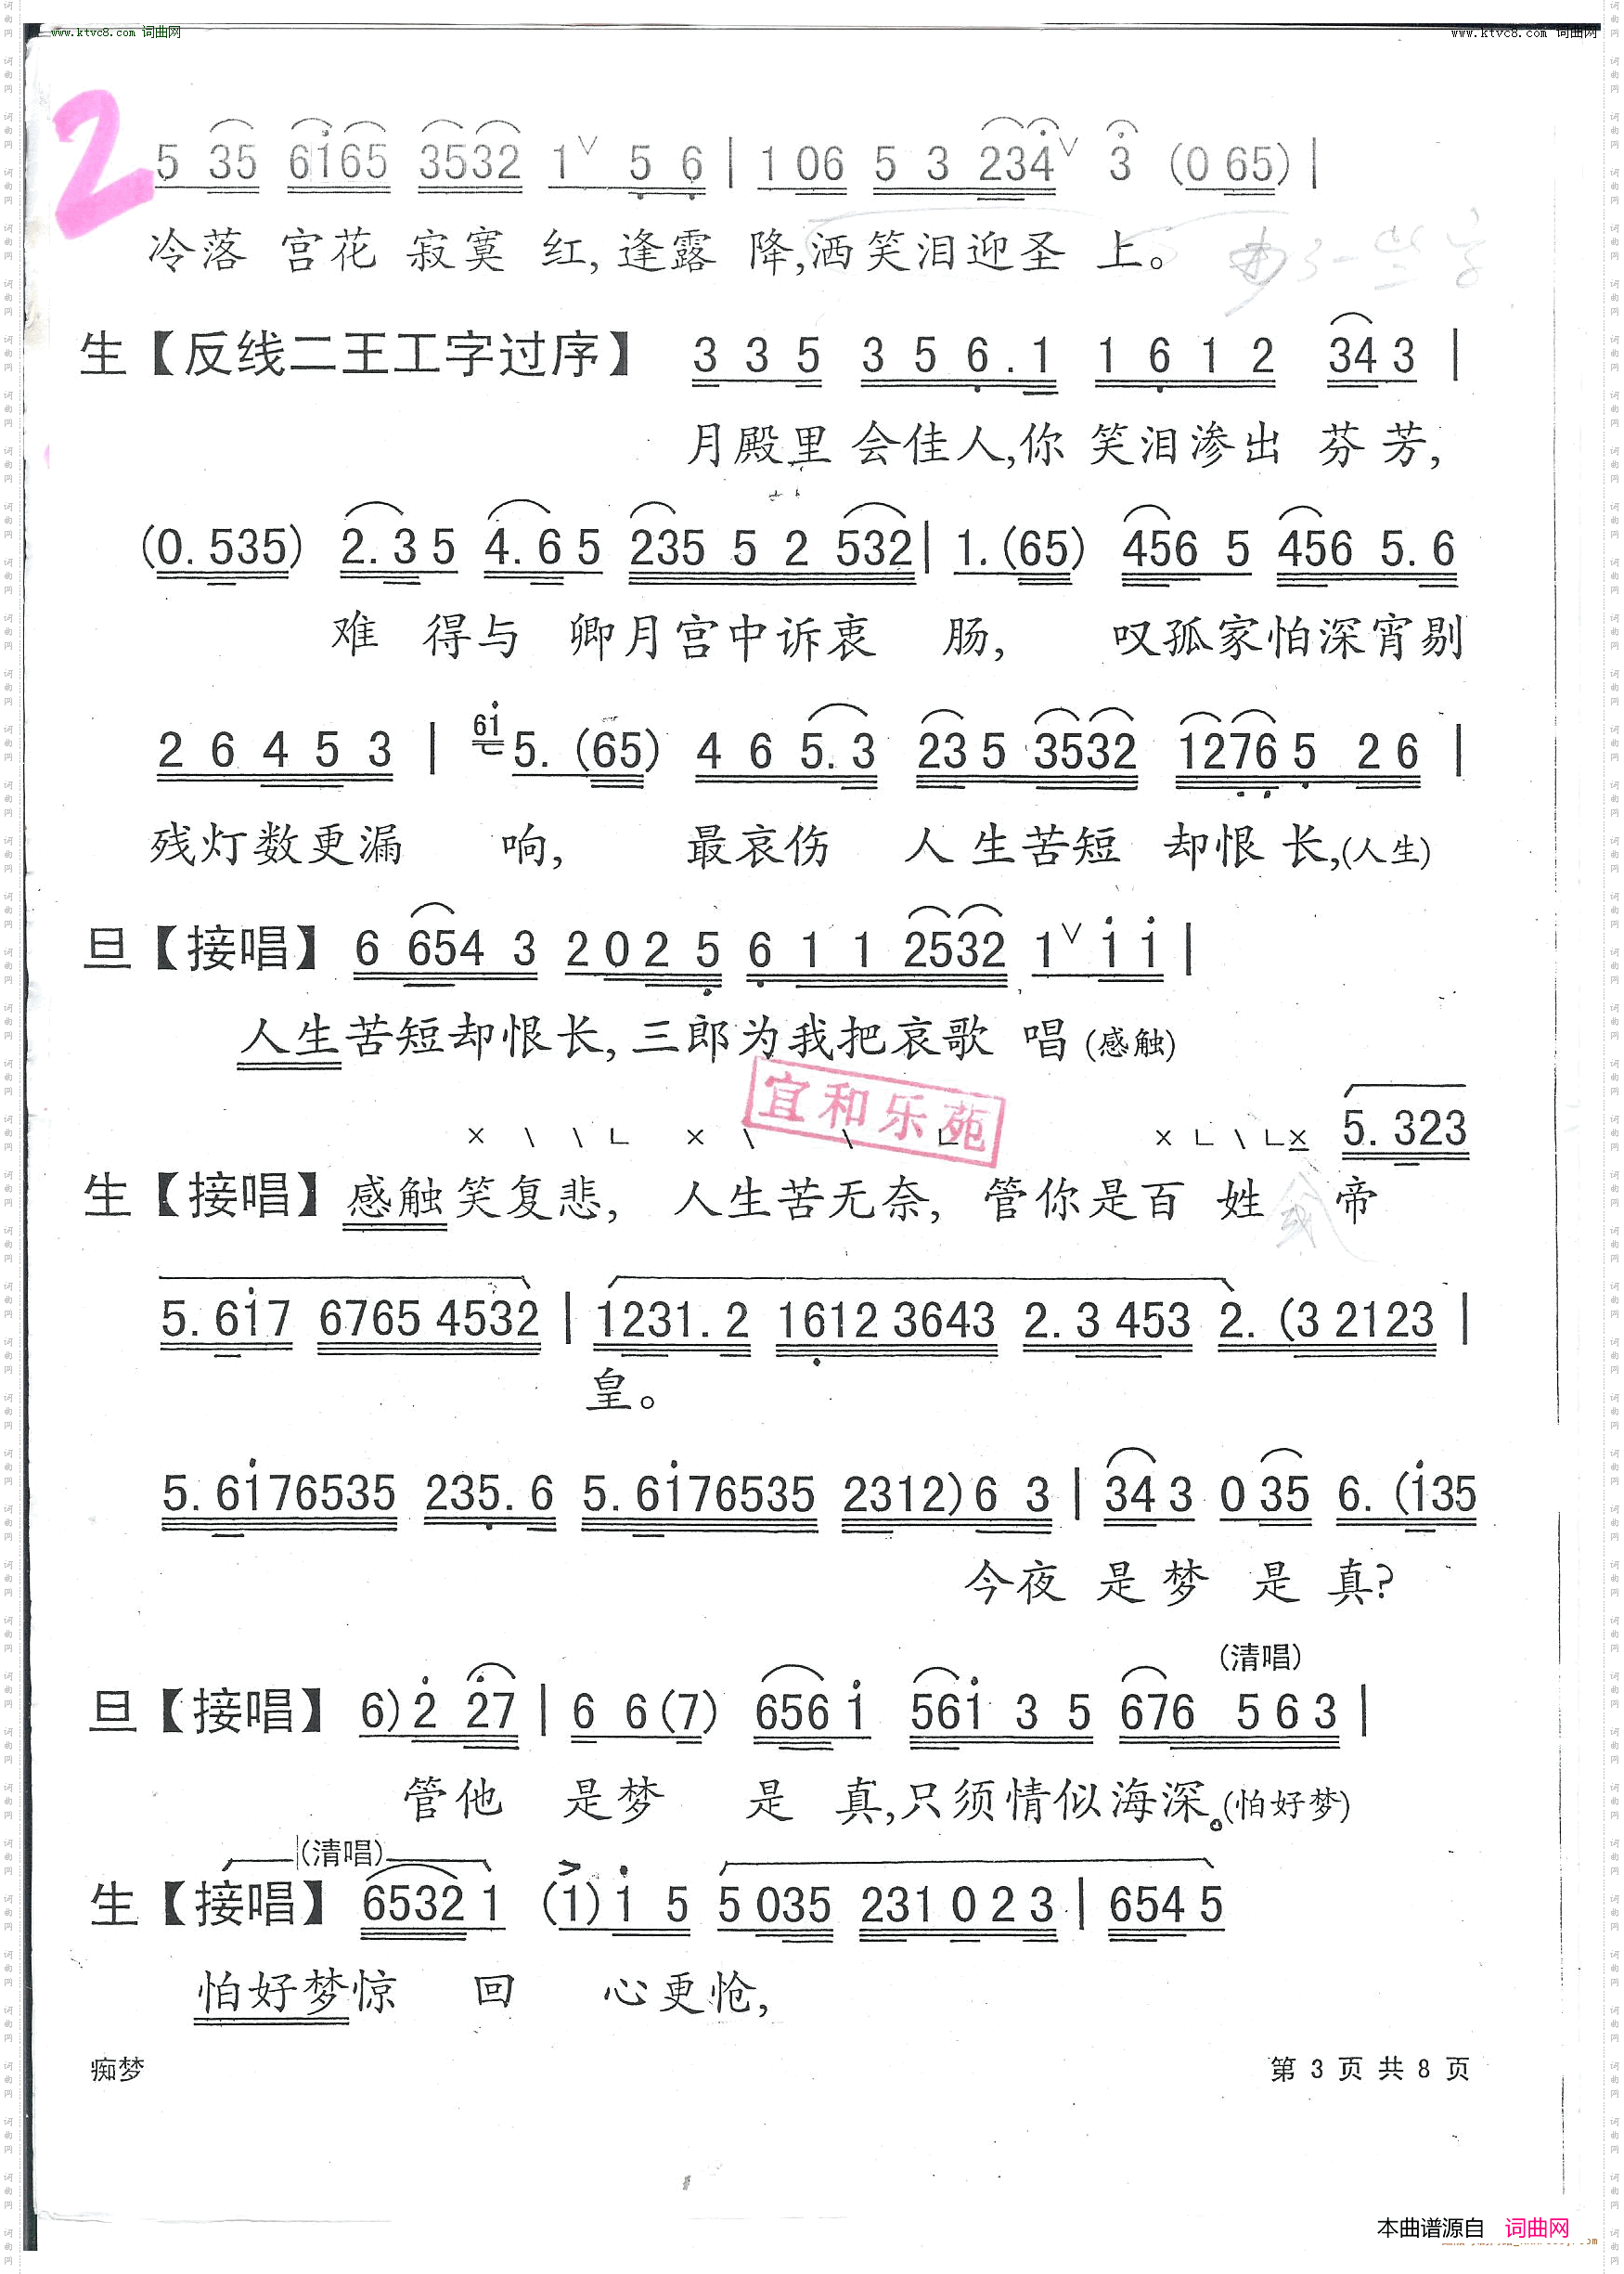 www.ktvc8.com 词曲网
www.ktvc8.com 词曲网
2
5 35 6i65 3532 1 ∨ 5 6 | 1 06 5 3 234 ∨ 3 (0 65) |
冷落 宫花 寂寞 红, 逢露 降,洒笑泪迎圣 上。
生【反线二王工字过序】 3 3 5 3 5 6 . 1 1 6 1 2 34 3 |
月殿里 会佳人,你 笑泪渗出 芬芳,
(0. 535) 2. 3 5 4. 6 5 235 5 2 532 | 1. (65) 456 5 456 5. 6
难 得与 卿月宫中诉衷 肠, 叹孤家怕深宵剔
2 6 4 5 3 | 6i 5. (65) 4 6 5. 3 23 5 3532 1276 5 2 6 |
残灯数更漏 响, 最哀伤 人生苦短 却恨长,(人生)
旦【接唱】 6 654 3 2 0 2 5 6 1 1 2532 1 ∨ i i |
人生苦短却恨长, 三郎为我把哀歌 唱 (感触)
宜和乐苑
× \ \ ㄴ × \ \ ㄴ × ㄴ \ ㄴ× 5. 323
生【接唱】感触笑复悲, 人生苦无奈, 管你是百 姓 帝
5. 6i7 6765 4532 | 1231. 2 1612 3643 2. 3 453 2. (3 2123 |
皇。
5. 6i76535 235. 6 5. 6i76535 2312) 6 3 | 34 3 0 35 6. (i35
今夜 是梦 是 真?
(清唱)
旦【接唱】 6) 2 27 | 6 6 (7) 656 i 56i 3 5 676 5 6 3 |
管他 是梦 是 真,只须情似海深。(怕好梦)
(清唱)
生【接唱】 6532 1 (1) i 5 5 035 231 0 2 3 | 654 5
怕好梦惊 回 心更怆,
痴梦
第 3 页 共 8 页
本曲谱源自 词曲网